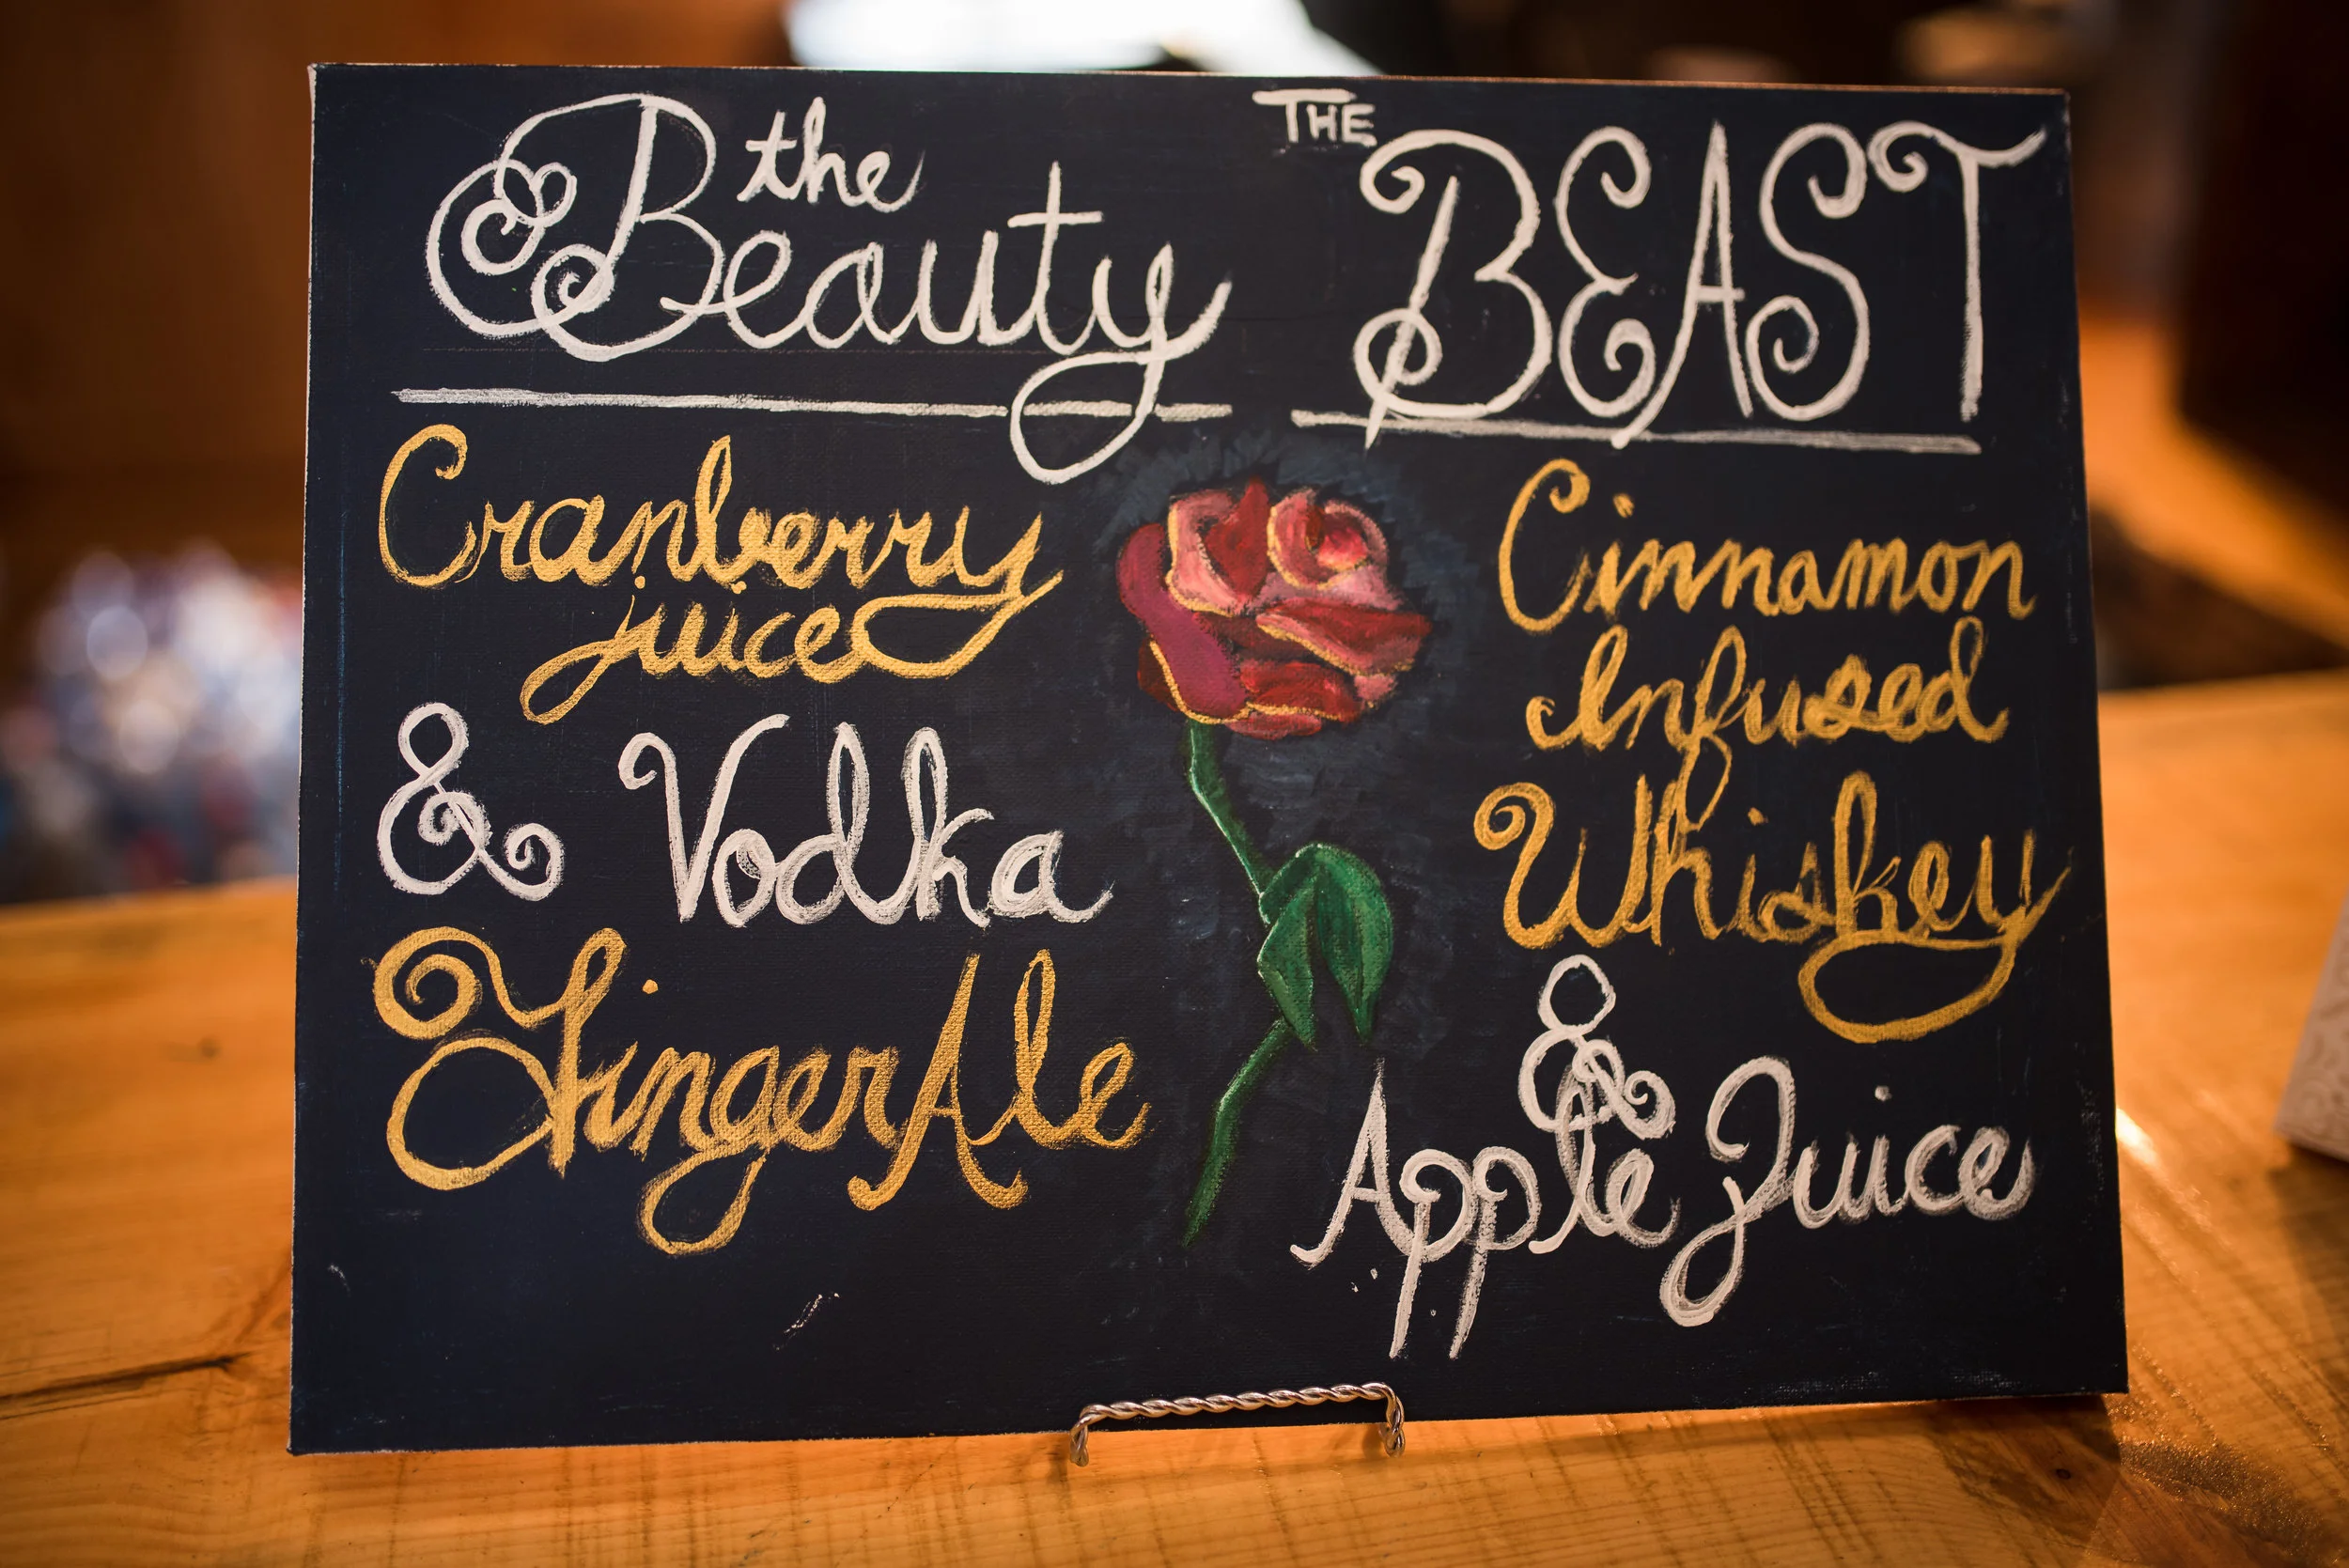 the
Beauty
Cranberry
juice
& Vodka
Ginger Ale
THE
BEAST
Cinnamon
Infused
Whiskey
&
Apple Juice